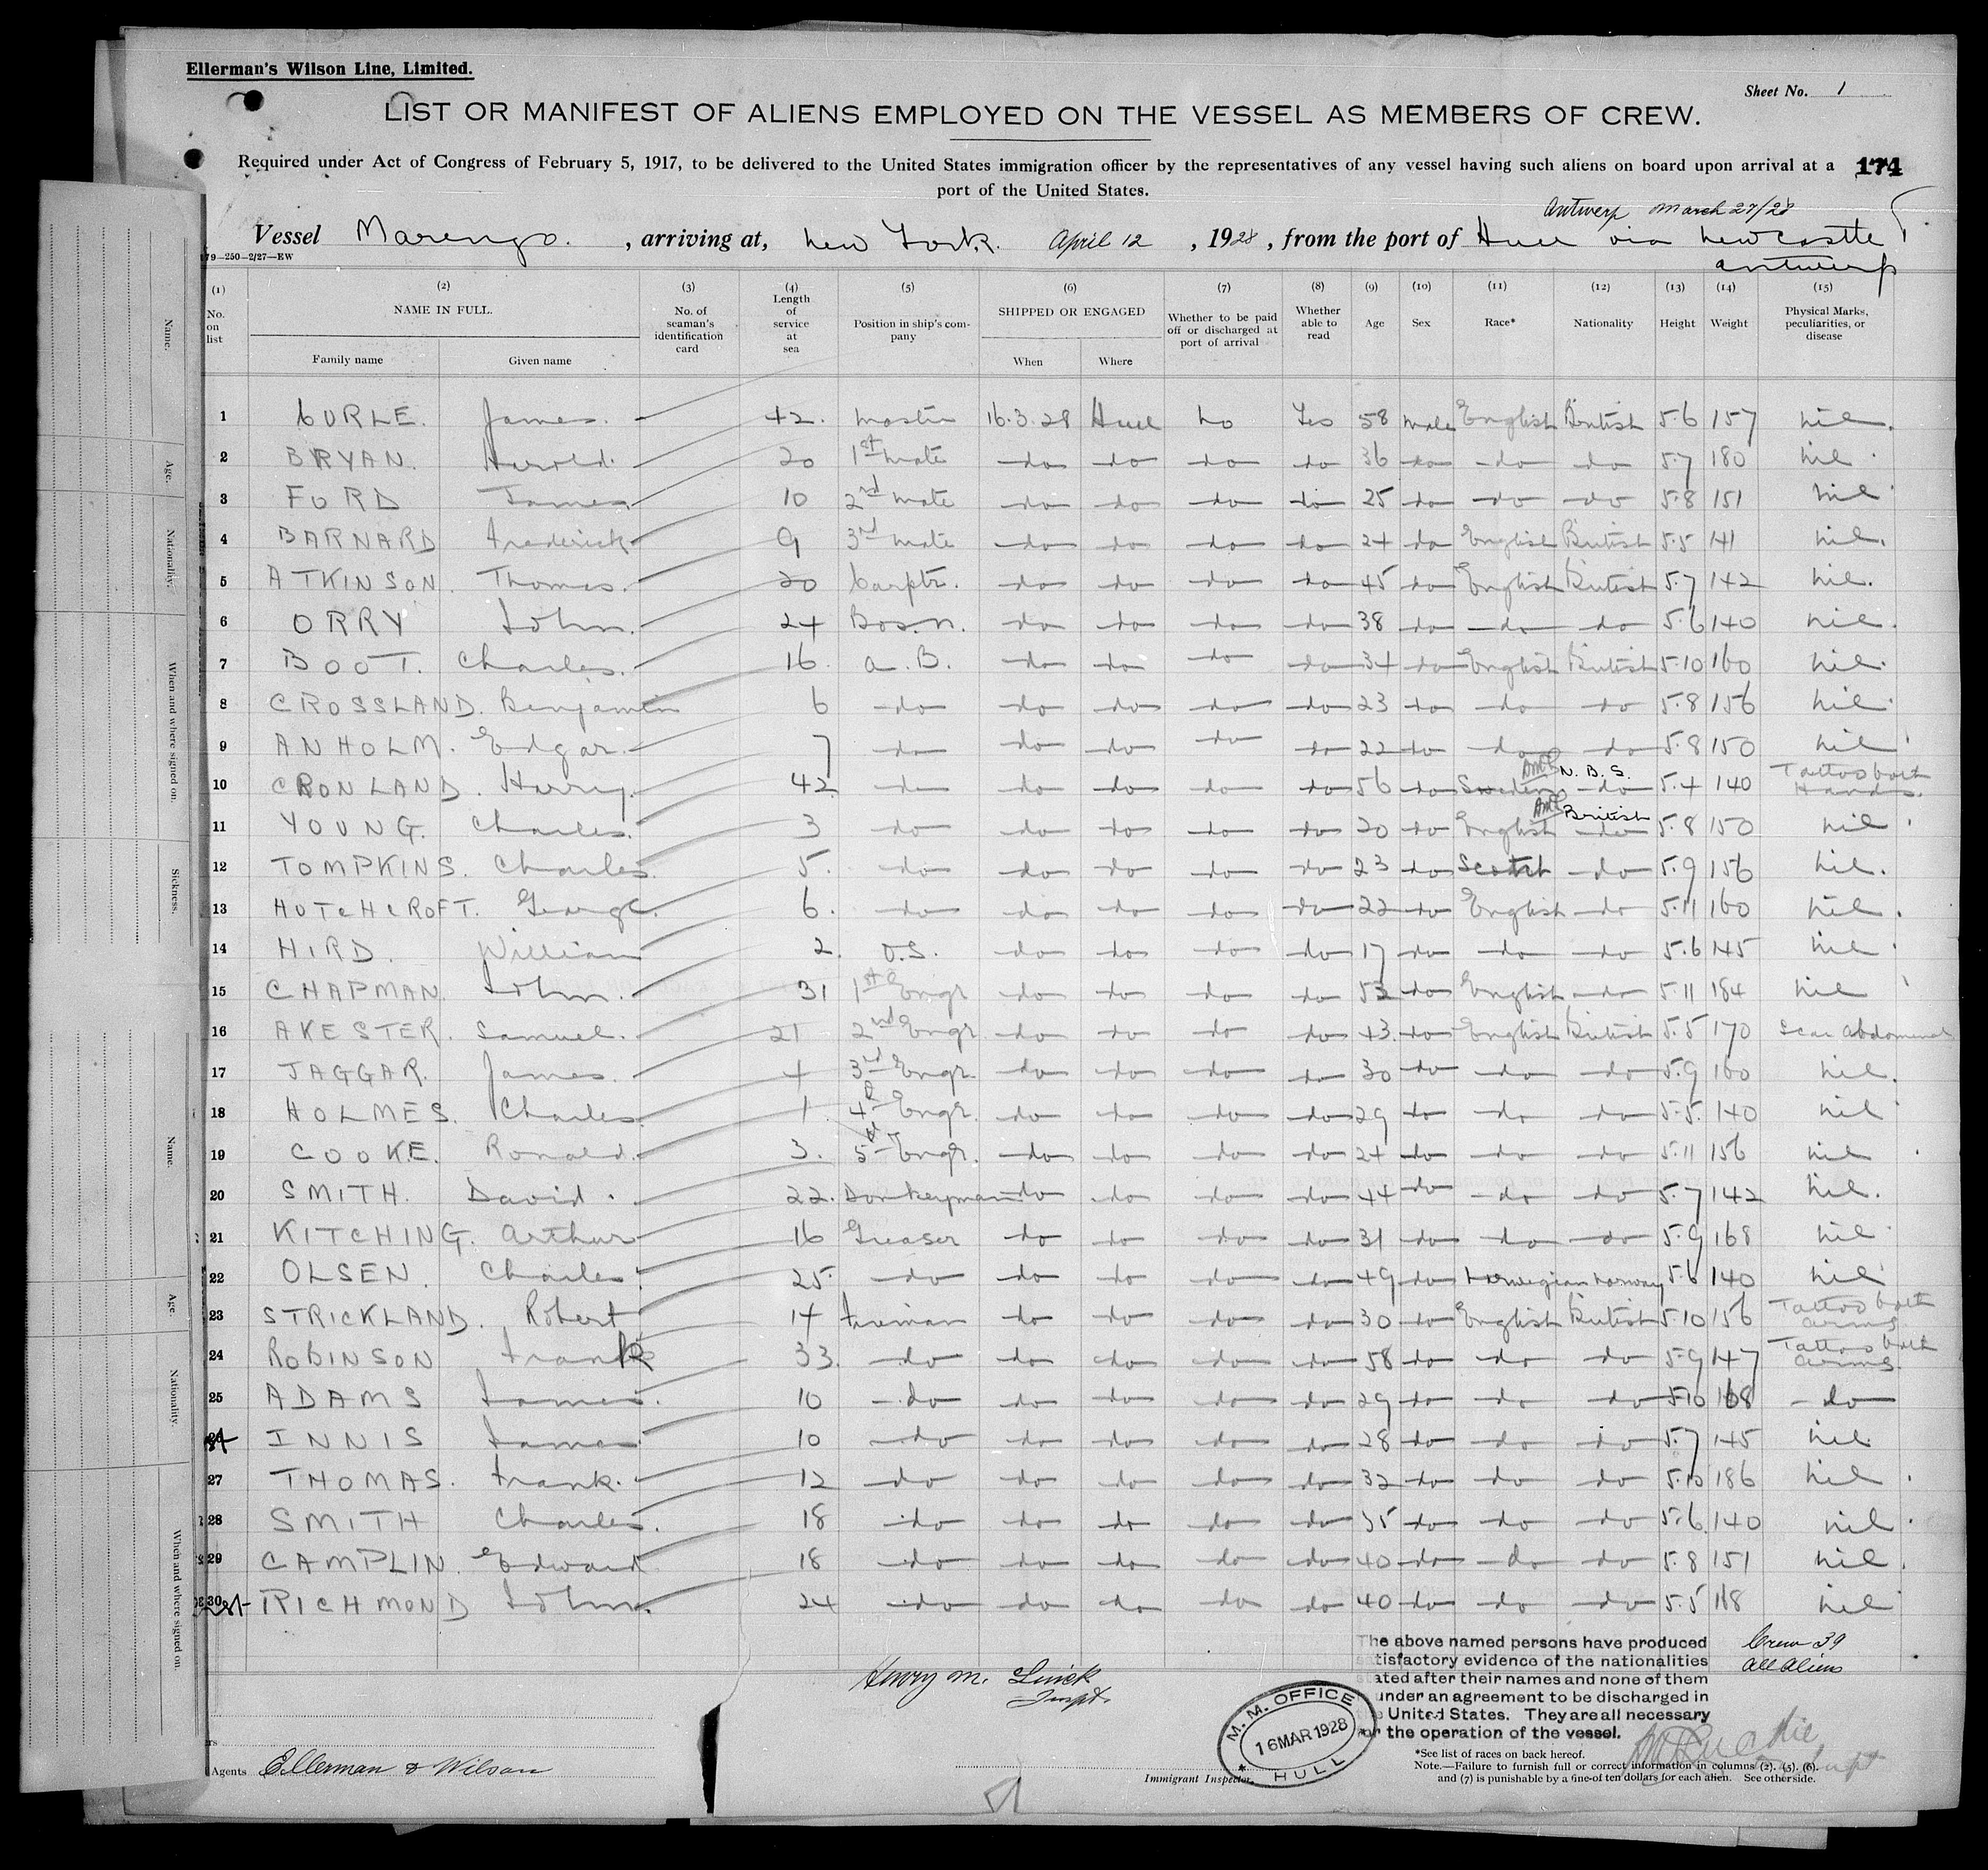 Ellerman's Wilson Line, Limited.
Sheet No. 1
LIST OR MANIFEST OF ALIENS EMPLOYED ON THE VESSEL AS MEMBERS OF CREW.
Required under Act of Congress of February 5, 1917, to be delivered to the United States immigration officer by the representatives of any vessel having such aliens on board upon arrival at a 174
port of the United States.
Antwerp March 27/28
Vessel Marengo. , arriving at, New York. April 12 , 1928 , from the port of Hull via Newcastle
Antwerp
79—250—2/27—EW
(1) (2) (3) (4) (5) (6) (7) (8) (9) (10) (11) (12) (13) (14) (15)
No. on list NAME IN FULL. No. of seaman's identification card Length of service at sea Position in ship's company SHIPPED OR ENGAGED Whether to be paid off or discharged at port of arrival Whether able to read Age Sex Race* Nationality Height Weight Physical Marks, peculiarities, or disease
Family name Given name When Where
1 CURLE. James. 42. Master 16.3.28 Hull No Yes 58 Male English British 5.6 157 Nil.
2 BRYAN. Harold. 20 1st Mate do do do do 36 do do do 5.7 180 Nil
3 FORD James 10 2nd Mate do do do do 25 do do do 5.8 151 Nil
4 BARNARD Frederick 9 3rd Mate do do do do 24 do English British 5.5 141 Nil.
5 ATKINSON. Thomas. 20 Carptr. do do do do 45 do English British 5.7 142 Nil.
6 ORRY John. 24 Bos.n. do do do do 38 do do do 5.6 140 Nil.
7 BOOT. Charles. 16. A.B. do do do do 34 do English British 5.10 160 Nil.
8 CROSSLAND. Benjamin 6 do do do do do 23 do do do 5.8 156 Nil.
9 ANHOLM. Edgar. 7 do do do do do 22 do do do 5.8 150 Nil
10 CRONLAND. Harry. 42 do do do do do 56 do Sweden N.B.S. do 5.4 140 Tattoo both Hands.
11 YOUNG. Charles. 3 do do do do do 20 do English British do 5.8 150 Nil
12 TOMPKINS. Charles. 5. do do do do do 23 do Scotch do 5.9 156 Nil.
13 HUTCHCROFT. George. 6. do do do do do 22 do English do 5.11 160 Nil.
14 HIRD. William 2. O.S. do do do do 17 do do do 5.6 145 Nil
15 CHAPMAN. John. 31 1st Engr do do do do 52 do English do 5.11 184 Nil
16 AKESTER. Samuel. 21 2nd Engr. do do do do 43. do English British 5.5 170 Scar Abdomenal
17 JAGGAR. James. 4 3rd Engr. do do do do 30 do do do 5.9 160 Nil.
18 HOLMES. Charles. 1. 4th Engr. do do do do 29 do do do 5.5. 140 Nil
19 COOKE. Ronald. 3. 5th Engr. do do do do 24 do do do 5.11 156 Nil
20 SMITH. David. 22. Donkeyman do do do do 44 do do do 5.7 142 Nil.
21 KITCHING. Arthur 16 Greaser do do do do 31 do do do 5.9 168 Nil
22 OLSEN. Charles. 25. do do do do do 49 do Norwegian Norway 5.6 140 Nil
23 STRICKLAND. Robert 14 Fireman do do do do 30 do English British 5.10 156 Tattoo both arms.
24 ROBINSON Frank 33. do do do do do 58 do do do 5.9 147 Tattoo both arms.
25 ADAMS James. 10 do do do do do 29 do do do 5.10 168 do
26 INNIS James 10 do do do do do 28 do do do 5.7 145 Nil.
27 THOMAS. Frank. 12 do do do do do 32 do do do 5.10 186 Nil.
28 SMITH Charles. 18 do do do do do 35 do do do 5.6. 140 Nil.
29 CAMPLIN. Edward. 18 do do do do do 40 do do do 5.8 151 Nil.
30 RICHMOND John. 24 do do do do do 40 do do do 5.5 118 Nil
The above named persons have produced
satisfactory evidence of the nationalities
stated after their names and none of them
under an agreement to be discharged in
United States. They are all necessary
for the operation of the vessel.
Crew 39
All Aliens
Henry M.
Inspt.
M. M. OFFICE
16 MAR 1928
HULL
*See list of races on back hereof.
Note.—Failure to furnish full or correct information in columns (2), (5), (6),
and (7) is punishable by a fine of ten dollars for each alien. See other side.
Agents Ellerman & Wilson
Immigrant Inspector.
Name.
Age.
Nationality.
When and where signed on.
Sickness.
Name.
Age.
Nationality.
When and where signed on.